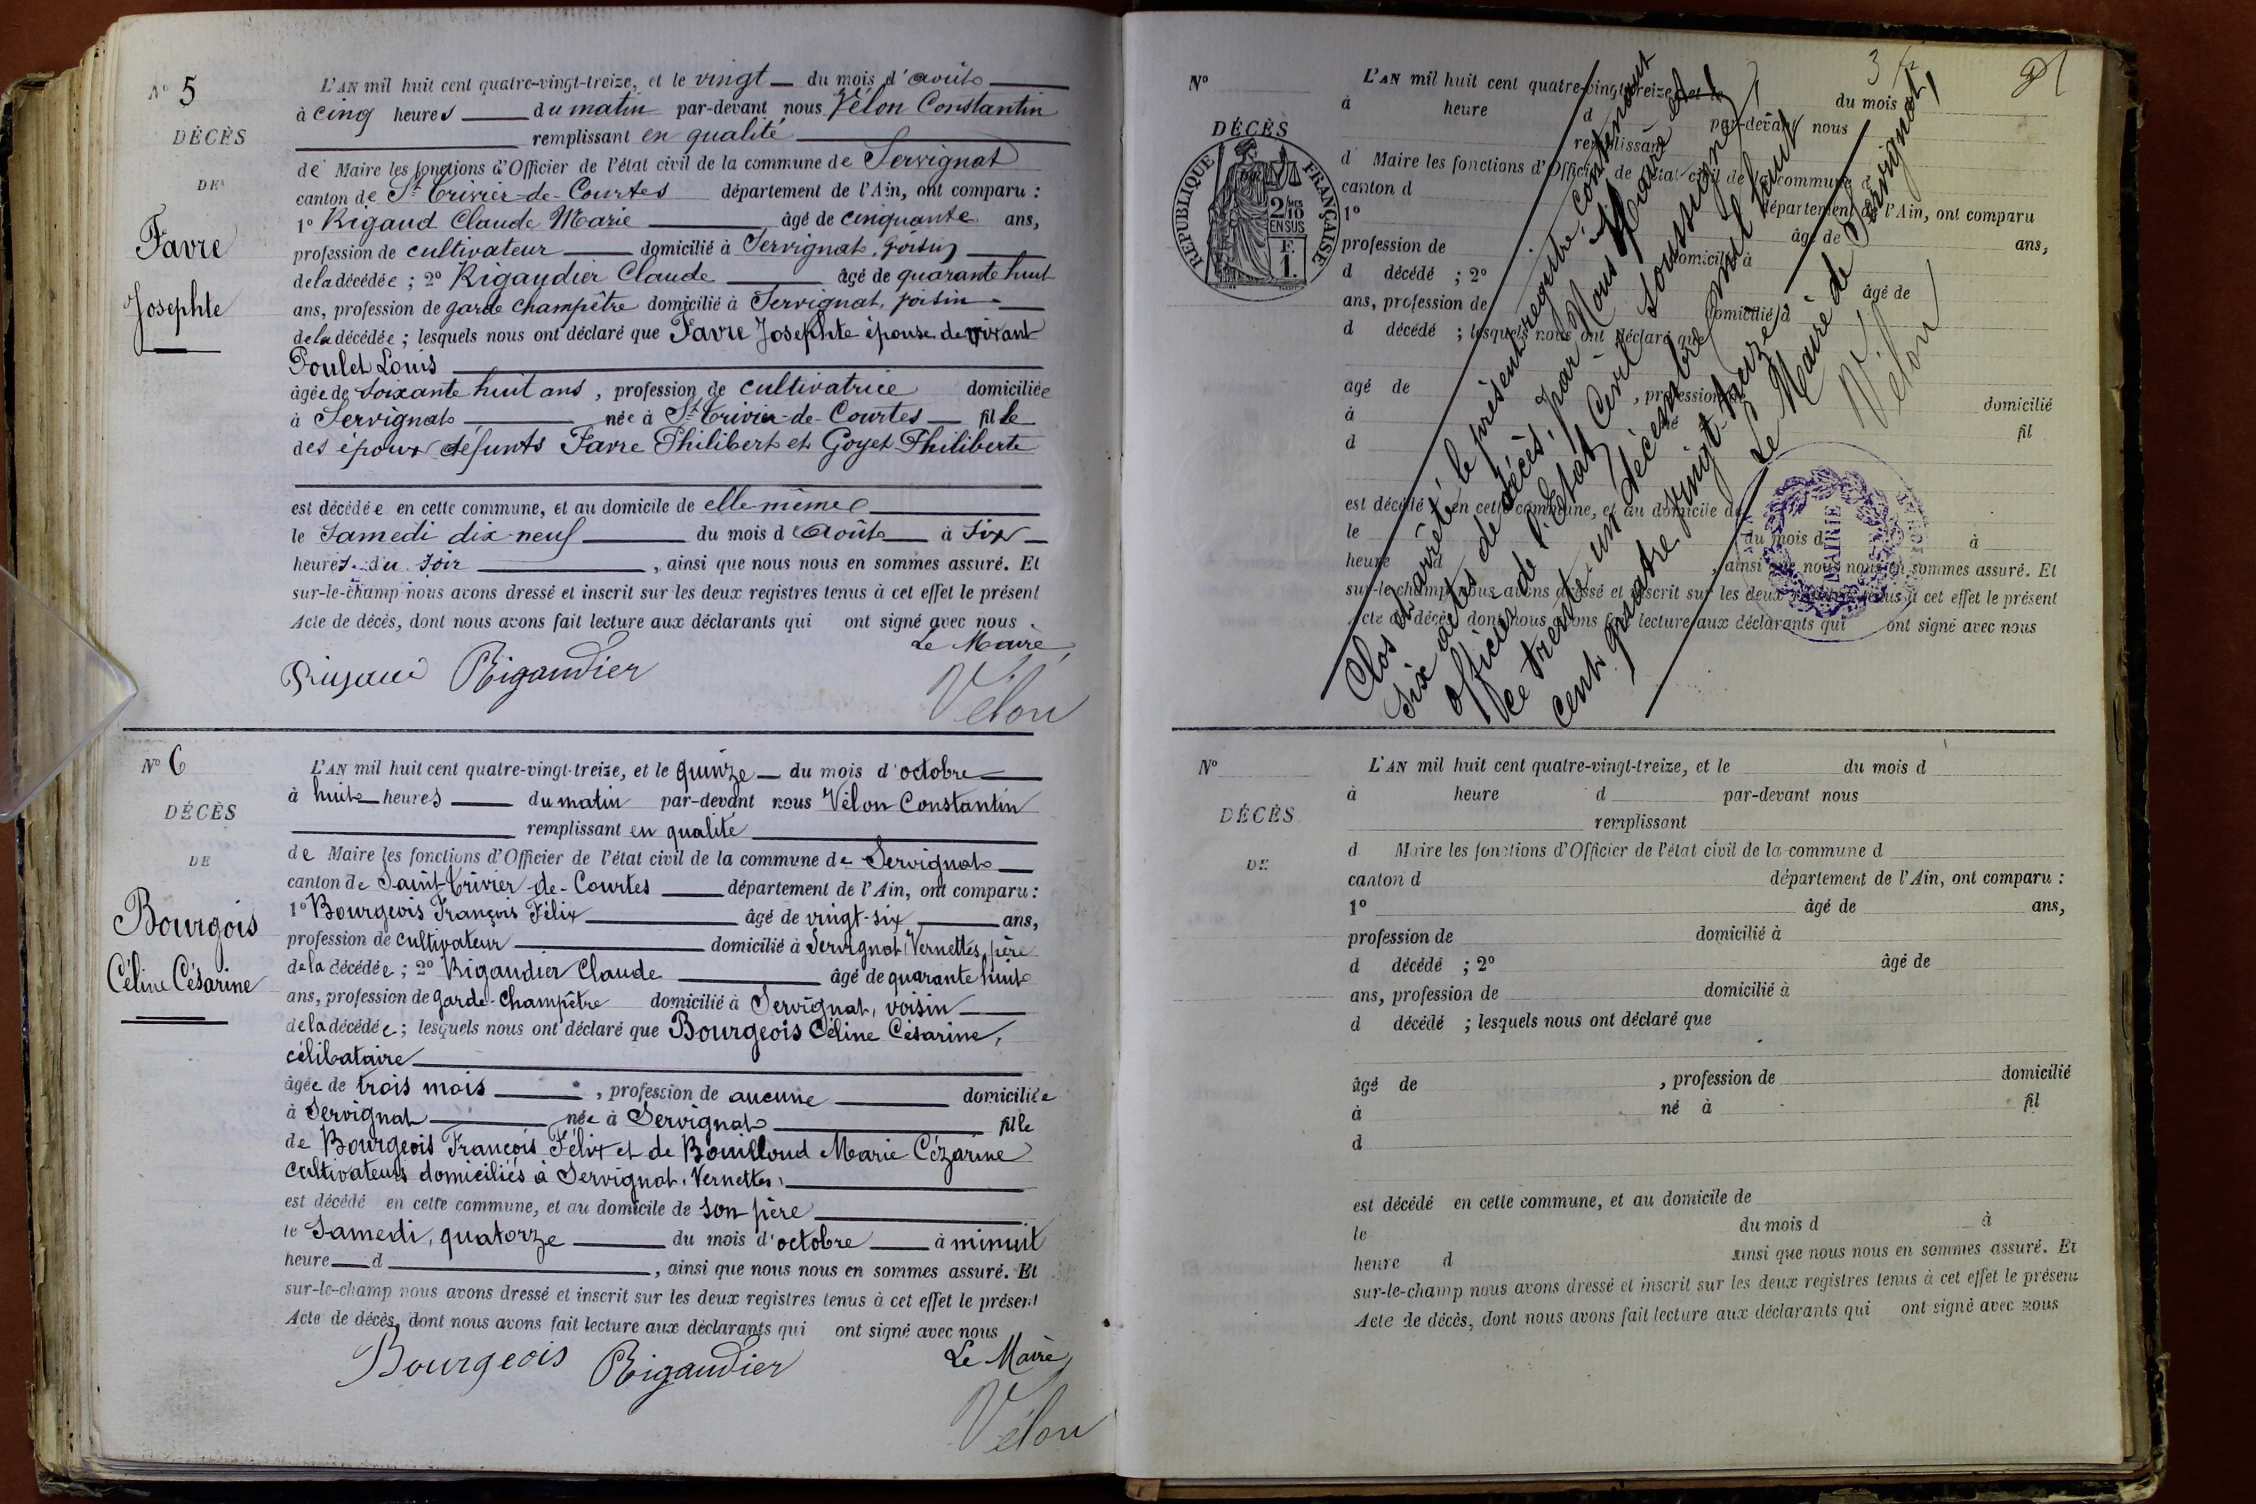 N° 5
DÉCÈS
DE
Favre
Josephte
L'AN mil huit cent quatre-vingt-treize, et le vingt du mois d'août
à cinq heures du matin par-devant nous Vélon Constantin
remplissant en qualité
de Maire les fonctions d'Officier de l'état civil de la commune de Servignat
canton de St Trivier-de-Courtes département de l'Ain, ont comparu :
1° Rigaud Claude Marie âgé de cinquante ans,
profession de cultivateur domicilié à Servignat, voisin
de la décédée ; 2° Rigaudier Claude âgé de quarante huit
ans, profession de garde champêtre domicilié à Servignat, voisin
de la décédée ; lesquels nous ont déclaré que Favre Josephte épouse de vivant
Poulet Louis
âgée de soixante huit ans, profession de cultivatrice domiciliée
à Servignat née à St Trivier-de-Courtes fille
des époux défunts Favre Philibert et Goyet Philiberte
est décédée en cette commune, et au domicile de elle-même
le Samedi dix-neuf du mois d'Août à six
heures du soir, ainsi que nous nous en sommes assuré. Et
sur-le-champ nous avons dressé et inscrit sur les deux registres tenus à cet effet le présent
Acte de décès, dont nous avons fait lecture aux déclarants qui ont signé avec nous
Le Maire,
Rigaud Rigaudier
Vélon
N° 6
DÉCÈS
DE
Bourgois
Céline Césarine
L'AN mil huit cent quatre-vingt-treize, et le quinze du mois d'octobre
à huit heures du matin par-devant nous Vélon Constantin
remplissant en qualité
de Maire les fonctions d'Officier de l'état civil de la commune de Servignat
canton de Saint-Trivier-de-Courtes département de l'Ain, ont comparu :
1° Bourgeois François Félix âgé de vingt-six ans,
profession de cultivateur domicilié à Servignat, Vernettes, père
de la décédée ; 2° Rigaudier Claude âgé de quarante huit
ans, profession de garde-champêtre domicilié à Servignat, voisin
de la décédée ; lesquels nous ont déclaré que Bourgeois Céline Césarine,
célibataire
âgée de trois mois, profession de aucune domiciliée
à Servignat née à Servignat fille
de Bourgeois François Félix et de Bouilloud Marie Cézarine
cultivateurs domiciliés à Servignat, Vernettes,
est décédé en cette commune, et au domicile de son père
le Samedi, quatorze du mois d'octobre à minuit
heure d , ainsi que nous nous en sommes assuré. Et
sur-le-champ nous avons dressé et inscrit sur les deux registres tenus à cet effet le présent
Acte de décès, dont nous avons fait lecture aux déclarants qui ont signé avec nous
Le Maire,
Bourgeois Rigaudier
Vélon
3
N°
DÉCÈS
RÉPUBLIQUE FRANÇAISE
2/10 EN SUS
F.
1.
L'AN mil huit cent quatre-vingt-treize, et le du mois d
à heure d par-devant nous
remplissant
d Maire les fonctions d'Officier de l'état civil de la commune d
canton d département de l'Ain, ont comparu
1° âgé de ans,
profession de domicilié à
d décédé ; 2° âgé de
ans, profession de domicilié à
d décédé ; lesquels nous ont déclaré que
âgé de , profession de domicilié
à né à fil
d
est décédé en cette commune, et au domicile de
le du mois d à
heure d , ainsi que nous nous en sommes assuré. Et
sur-le-champ nous avons dressé et inscrit sur les deux registres tenus à cet effet le présent
Acte de décès, dont nous avons fait lecture aux déclarants qui ont signé avec nous
Clos et arrêté le présent registre, contenant
six actes de décès, par Nous Maire et
officier de l'État Civil soussigné,
ce trente-un décembre mil huit
cent quatre-vingt-treize.
Le Maire de Servignat,
Vélon
MAIRIE
N°
DÉCÈS
DE
L'AN mil huit cent quatre-vingt-treize, et le du mois d
à heure d par-devant nous
remplissant
d Maire les fonctions d'Officier de l'état civil de la commune d
canton d département de l'Ain, ont comparu :
1° âgé de ans,
profession de domicilié à
d décédé ; 2° âgé de
ans, profession de domicilié à
d décédé ; lesquels nous ont déclaré que
âgé de , profession de domicilié
à né à fil
d
est décédé en cette commune, et au domicile de
le du mois d à
heure d ainsi que nous nous en sommes assuré. Et
sur-le-champ nous avons dressé et inscrit sur les deux registres tenus à cet effet le présent
Acte de décès, dont nous avons fait lecture aux déclarants qui ont signé avec nous